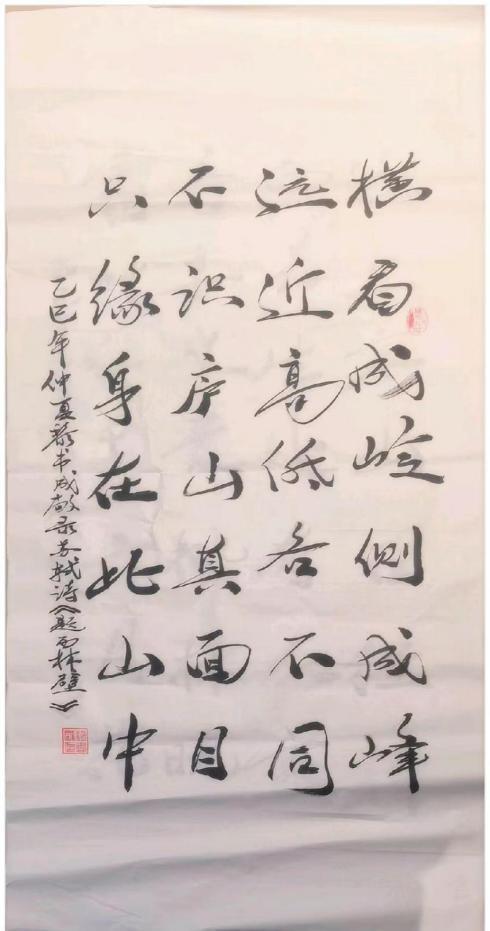 横看成岭侧成峰
远近高低各不同
不识庐山真面目
只缘身在此山中
乙巳年仲夏 书成 录苏轼诗《题西林壁》